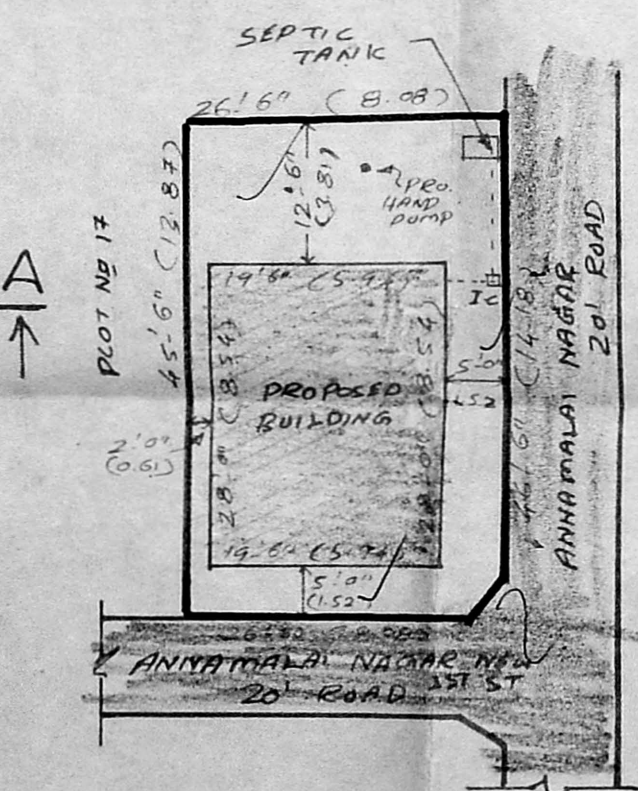 SEPTIC
TANK
26'6" (8.08)
12'6'
(3.81)
PRO.
HAND
PUMP
A
PLOT No 17
45'6" (13.87)
19'6"
IC
5'0"
1.52
(8.54)
28'0"
PROPOSED
BUILDING
(8.54)
28'0"
2'0"
(0.61)
19'6"
5'0"
(1.52)
46'6" (14.18)
ANNAMALAI NAGAR
20' ROAD
ANNAMALAI NAGAR NEW
1ST ST
20' ROAD